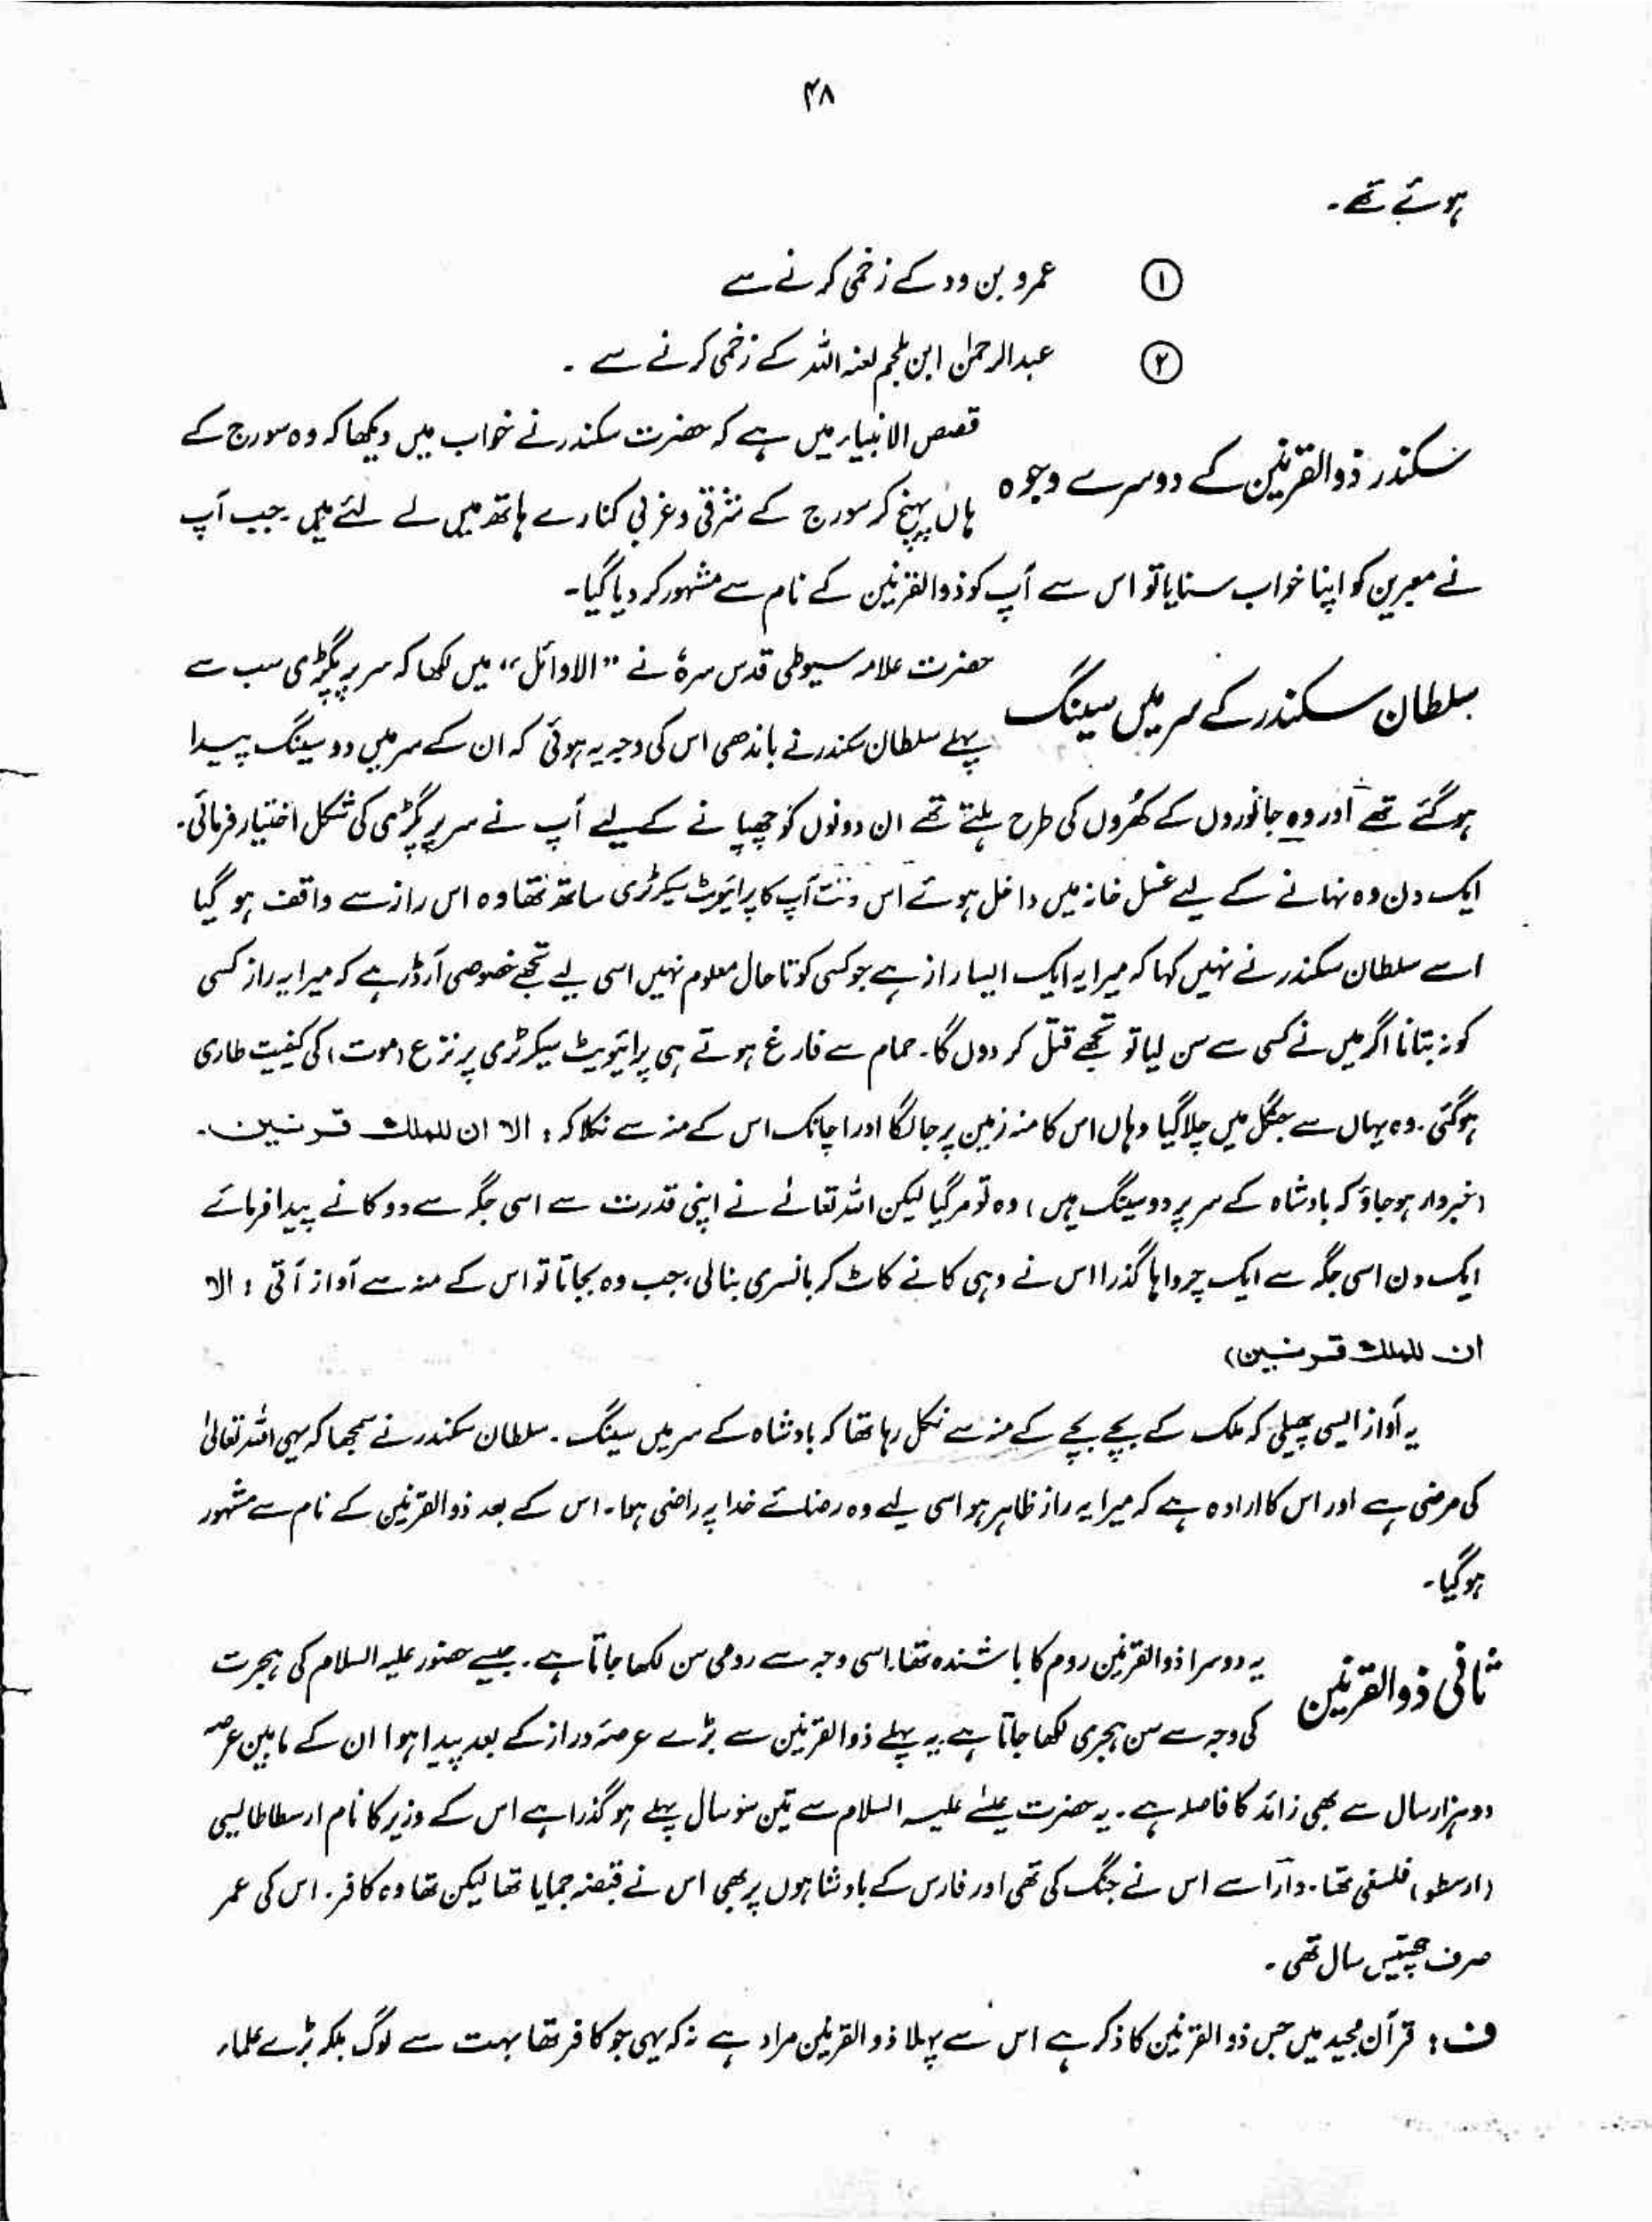 ۴۸
ہوئے تھے۔
① عمرو بن ود کے زخمی کرنے سے
② عبدالرحمٰن ابن ملجم لعنہ اللہ کے زخمی کرنے سے ۔
سکندر ذوالقرنین کے دوسرے وجوہ
قصص الانبیاء میں ہے کہ حضرت سکندر نے خواب میں دیکھا کہ وہ سورج کے
ہاں پہنچ کر سورج کے شرقی و غربی کنارے ہاتھ میں لے لئے ہیں۔ جب آپ
نے معبرین کو اپنا خواب سنایا تو اس سے آپ کو ذوالقرنین کے نام سے مشہور کر دیا گیا۔
سلطان سکندر کے سر میں سینگ
حضرت علامہ سیوطی قدس سرہٗ نے "الاوائل" میں لکھا کہ سر پر پگڑی سب سے
پہلے سلطان سکندر نے باندھی اس کی وجہ یہ ہوئی کہ ان کے سر میں دو سینگ پیدا
ہو گئے تھے اور وہ جانوروں کے کھُروں کی طرح ہلتے تھے ان دونوں کو چھپانے کے لیے آپ نے سر پر پگڑی کی شکل اختیار فرمائی۔
ایک دن وہ نہانے کے لیے غسل خانہ میں داخل ہوئے اس وقت آپ کا پرائیویٹ سیکرٹری ساتھ تھا وہ اس راز سے واقف ہو گیا
اسے سلطان سکندر نے نہیں کہا کہ میرا یہ ایک ایسا راز ہے جو کسی کو تا حال معلوم نہیں اسی لیے تجھے خصوصی آرڈر ہے کہ میرا یہ راز کسی
کو نہ بتانا اگر میں نے کسی سے سن لیا تو تجھے قتل کر دوں گا۔ حمام سے فارغ ہوتے ہی پرائیویٹ سیکرٹری پر نزع (موت) کی کیفیت طاری
ہو گئی۔ وہ یہاں سے جنگل میں چلا گیا وہاں اس کا منہ زمین پر جا لگا اور اچانک اس کے منہ سے نکلا کہ : الا ان للملك قرنین۔
(خبردار ہو جاؤ کہ بادشاہ کے سر پر دو سینگ ہیں) وہ تو مر گیا لیکن اللہ تعالےٰ نے اپنی قدرت سے اسی جگہ سے دو کانے پیدا فرمائے
ایک دن اسی جگہ سے ایک چرواہا گذرا اس نے وہی کانے کاٹ کر بانسری بنا لی، جب وہ بجاتا تو اس کے منہ سے آواز آتی : الا
ان للملك قرنین)
یہ آواز ایسی پھیلی کہ ملک کے بچے بچے کے منہ سے نکل رہا تھا کہ بادشاہ کے سر میں سینگ۔ سلطان سکندر نے سمجھا کہ یہی اللہ تعالیٰ
کی مرضی ہے اور اس کا ارادہ ہے کہ میرا یہ راز ظاہر ہو اسی لیے وہ رضائے خدا پر راضی ہوا۔ اس کے بعد ذوالقرنین کے نام سے مشہور
ہو گیا۔
ثانی ذوالقرنین
یہ دوسرا ذوالقرنین روم کا باشندہ تھا۔ اسی وجہ سے رومی سن لکھا جاتا ہے۔ جیسے حضور علیہ السلام کی ہجرت
کی وجہ سے سن ہجری لکھا جاتا ہے یہ پہلے ذوالقرنین سے بڑے عرصۂ دراز کے بعد پیدا ہوا ان کے مابین عرصہ
دو ہزار سال سے بھی زائد کا فاصلہ ہے۔ یہ حضرت عیسےٰ علیہ السلام سے تین سو سال پہلے ہو گذرا ہے اس کے وزیر کا نام ارسطاطالیسی
(ارسطو) فلسفی تھا۔ دارا سے اس نے جنگ کی تھی اور فارس کے بادشاہوں پر بھی اس نے قبضہ جمایا تھا لیکن تھا وہ کافر۔ اس کی عمر
صرف چھتیس سال تھی۔
ف : قرآن مجید میں جس ذوالقرنین کا ذکر ہے اس سے پہلا ذوالقرنین مراد ہے نہ کہ یہی جو کافر تھا بہت سے لوگ بلکہ بڑے علماء